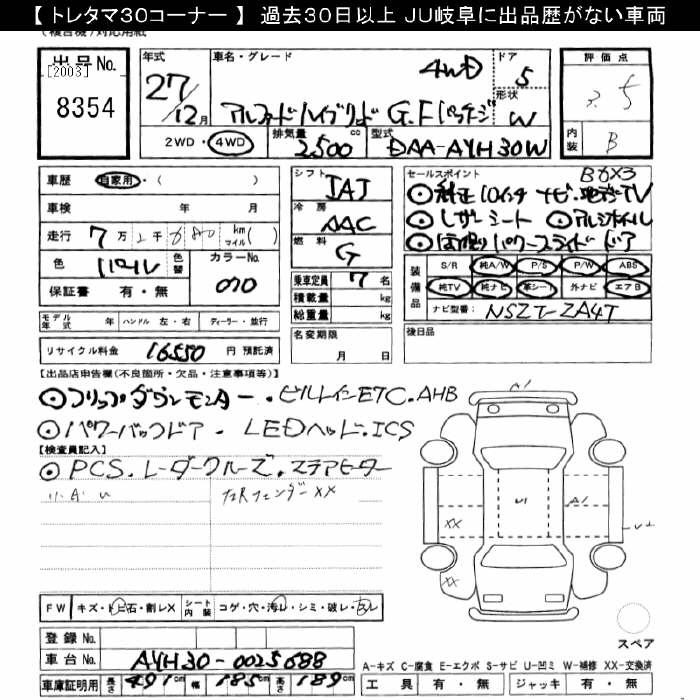 【 トレタマ30コーナー 】 過去30日以上 JU岐阜に出品歴がない車両
出品No.
[2003]
8354
年式
27/12月
車名・グレード
4WD
アルファードハイブリッド G.Fパッケージ
ドア
5
形状
W
評価点
5
内装
B
2WD・4WD
排気量
2500 cc
型式
DAA-AYH30W
車歴 自家用・( )
車検 年 月
走行 7万2千680 km マイル( )
色 パール 色替 カラーNo. 070
保証書 有・無
シフト
IAT
冷房
AAC
燃料
G
乗車定員 7 名
積載量 kg
総重量 kg
セールスポイント B6X3
純正10インチナビ・地デジTV
レザーシート アルミホイル
両側パワースライドドア
装備品
S/R 純A/W P/S P/W ABS
純TV 純ナビ 革シート 外ナビ エアB
ナビ型番: NSZT-ZA4T
モデル年式 年 ハンドル 左・右 ディーラー・並行
リサイクル料金 16550 円 預託済
名変期限
月 日
後日品
【出品店申告欄(不良箇所・欠品・注意事項等)】
フリップダウンモニター.ビルトインETC.AHB
パワーバックドア. LEDヘッド.ICS
【検査員記入】
PCS.レーダークルーズ.ステアヒーター
小A U
左Rフェンダーxx
A1
U1
A1
XX
U2
XX
FW キズ・トビ石・割レX シート内装 コゲ・穴・汚レ・シミ・破レ・
登録No.
車台No. AYH30-0025688
車庫証明用 長さ 491cm 幅 185cm 高さ 189cm
スペア
A-キズ C-腐食 E-エクボ S-サビ U-凹ミ W-補修 XX-交換済
工具 有・無 ジャッキ 有・無